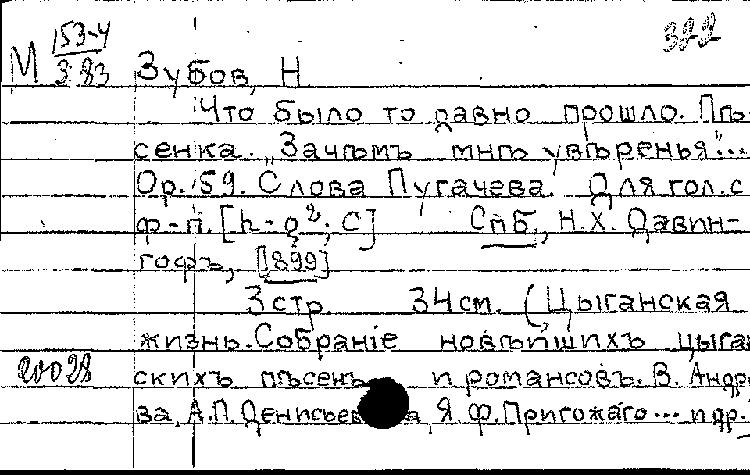 М 153-4 322
3 83 Зубов, Н
Что было то давно прошло. Пѣ
сенка. „Зачѣмъ мнѣ увѣренья"...
Ор. 59. Слова Пугачева. Для гол. с
ф-п. [h-g²; C] СПБ., Н.Х. Давин-
гофъ, [1899]
3 стр. 34 см. (Цыганская
жизнь. Собраніе новѣйшихъ цыга
20028 скихъ пѣсенъ и романсовъ. В. Андр
ва, А.П. Денисьев а, Я.Ф. Пригожаго ... и др.